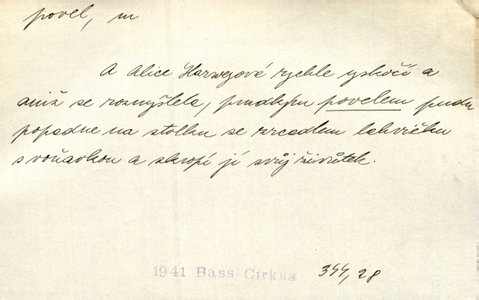 povel, m
A Alice Harwejové rychle vskočí a
aniž se rozmýšlela, prudkým povelem pudu
popadne na stolku se zrcadlem lahvičku
s voňavkou a skropí jí svůj živůtek.
1941 Bass Cirkus 344, 28